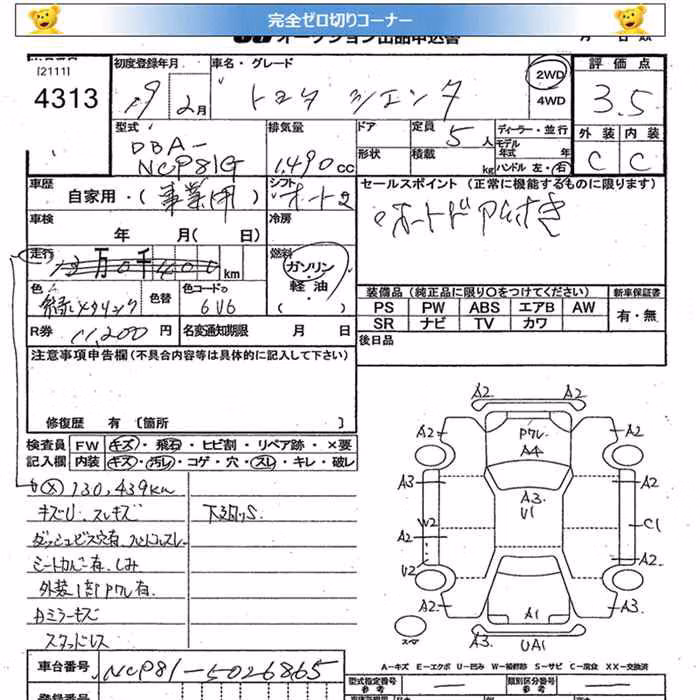 完全ゼロ切りコーナー
オークション出品申込書
[2111]
4313
初度登録年月
19年2月
車名・グレード
トヨタ シエンタ
2WD
4WD
評価点
3.5
外装 内装
C C
型式
DBA-
NCP81G
排気量
1,490cc
ドア
定員 5人
形状
積載 kg
ディーラー・並行
モデル年式 年
ハンドル 左・右
車歴
自家用・(事業用)
シフト
オート2
セールスポイント (正常に機能するものに限ります)
オートドア付き
車検
年 月( 日)
冷房
走行
13万0千400km
燃料
ガソリン・軽油
( )
色
緑メタリック
色替
色コードNo
6V6
装備品(純正品に限り〇をつけてください)
新車保証書
PS PW ABS エアB AW
SR ナビ TV カワ
有・無
R券 11,200円
名変通知期限 月 日
後日品
注意事項申告欄(不具合内容等は具体的に記入して下さい)
修復歴 有〔箇所 〕
検査員記入欄
FW キズ・飛石・ヒビ割・リペア跡・×要
内装 キズ・汚レ・コゲ・穴・スレ・キレ・破レ
130,439km
キズU、スレキズ
下廻りS
シートカバー有、しみ
外装1部Pワレ有
ドアミラーキズ
スタッドレス
車台番号 NCP81-5026865
A2 A2
A2 Pワレ A2
A4
A3 A2
A3
U1
W2 C1
A2 A2
U2
A2 A1 A3
スペア A3 UA1
A-キズ E-エクボ U-凹み W-補修跡 S-サビ C-腐食 XX-交換済
型式指定番号
参考
類別区分番号
参考